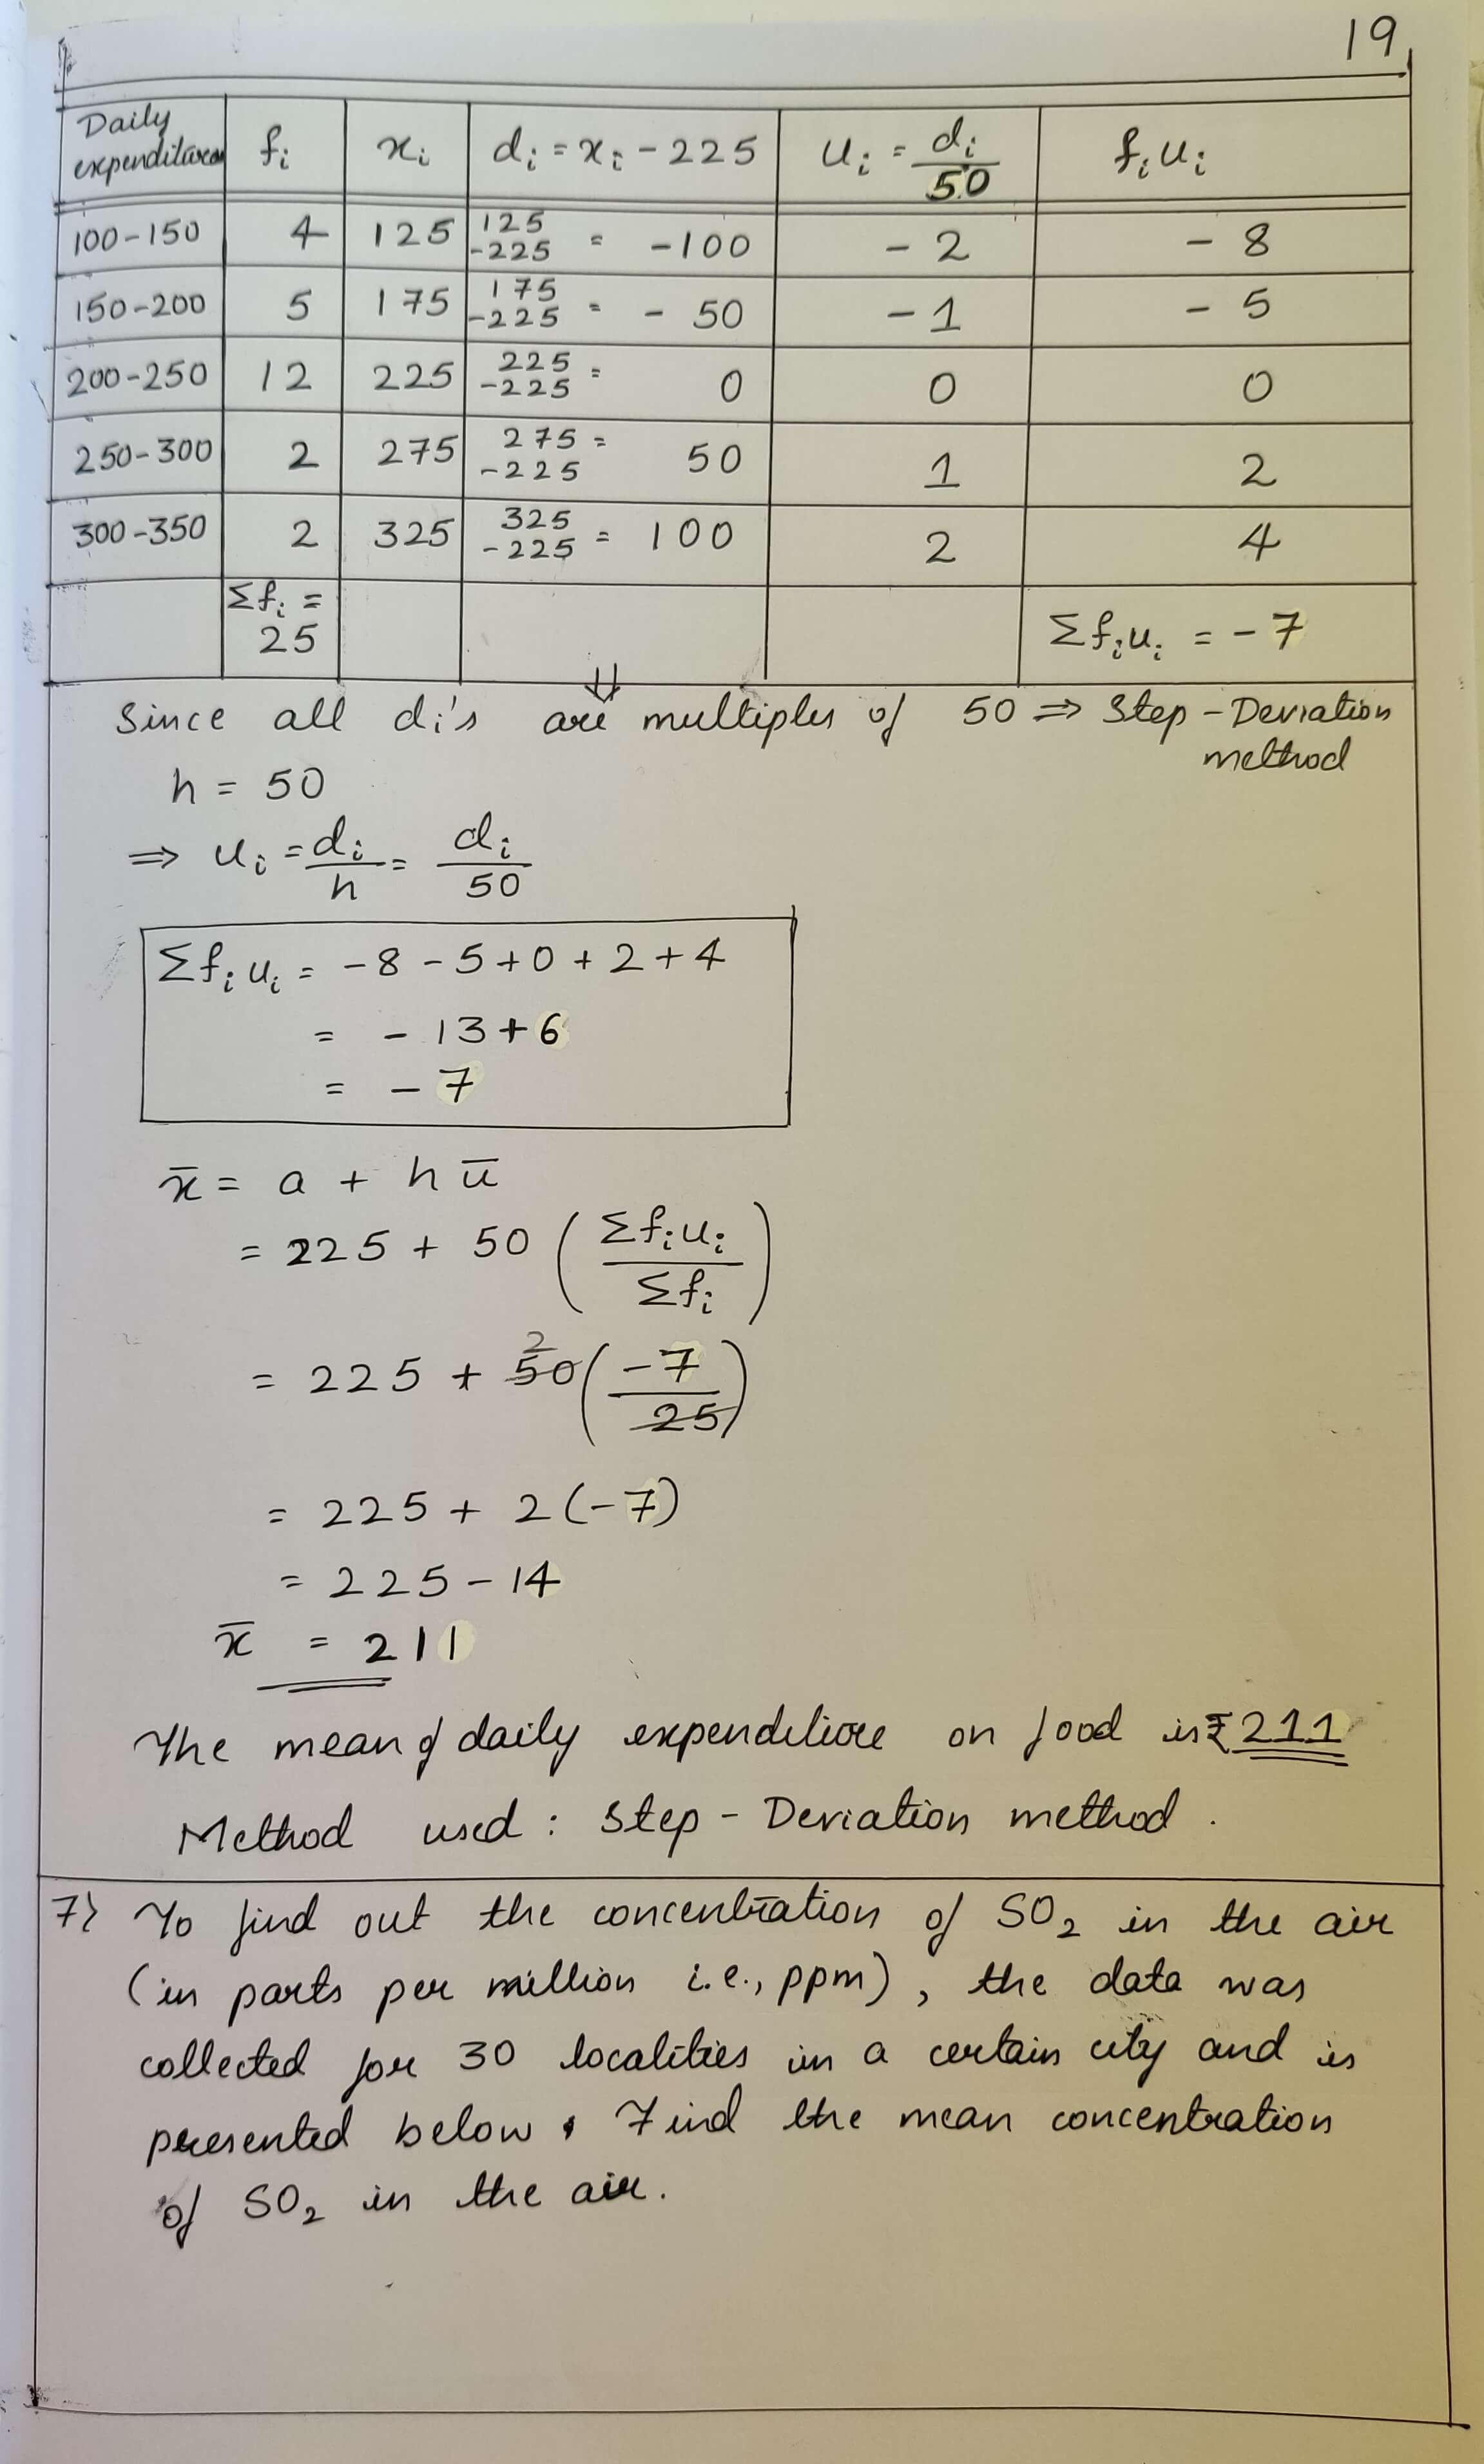 19
Daily expenditure | fᵢ | xᵢ | dᵢ = xᵢ - 225 | uᵢ = dᵢ/50 | fᵢuᵢ
100-150 | 4 | 125 | 125 -225 = -100 | -2 | -8
150-200 | 5 | 175 | 175 -225 = -50 | -1 | -5
200-250 | 12 | 225 | 225 -225 = 0 | 0 | 0
250-300 | 2 | 275 | 275 -225 = 50 | 1 | 2
300-350 | 2 | 325 | 325 -225 = 100 | 2 | 4
Σfᵢ = 25 | Σfᵢuᵢ = -7
⇓
Since all dᵢ's are multiples of 50 ⇒ Step-Deviation
method
h = 50
⇒ uᵢ = dᵢ/h = dᵢ/50
Σfᵢuᵢ = -8 - 5 + 0 + 2 + 4
= -13 + 6
= -7
x̄ = a + hū
= 225 + 50 (Σfᵢuᵢ/Σfᵢ)
2
= 225 + 50 (-7/25)
= 225 + 2(-7)
= 225 - 14
x̄ = 211
The mean of daily expenditure on food is ₹ 211
Method used : Step - Deviation method.
7) To find out the concentration of SO₂ in the air
(in parts per million i.e., ppm), the data was
collected for 30 localities in a certain city and is
presented below. Find the mean concentration
of SO₂ in the air.